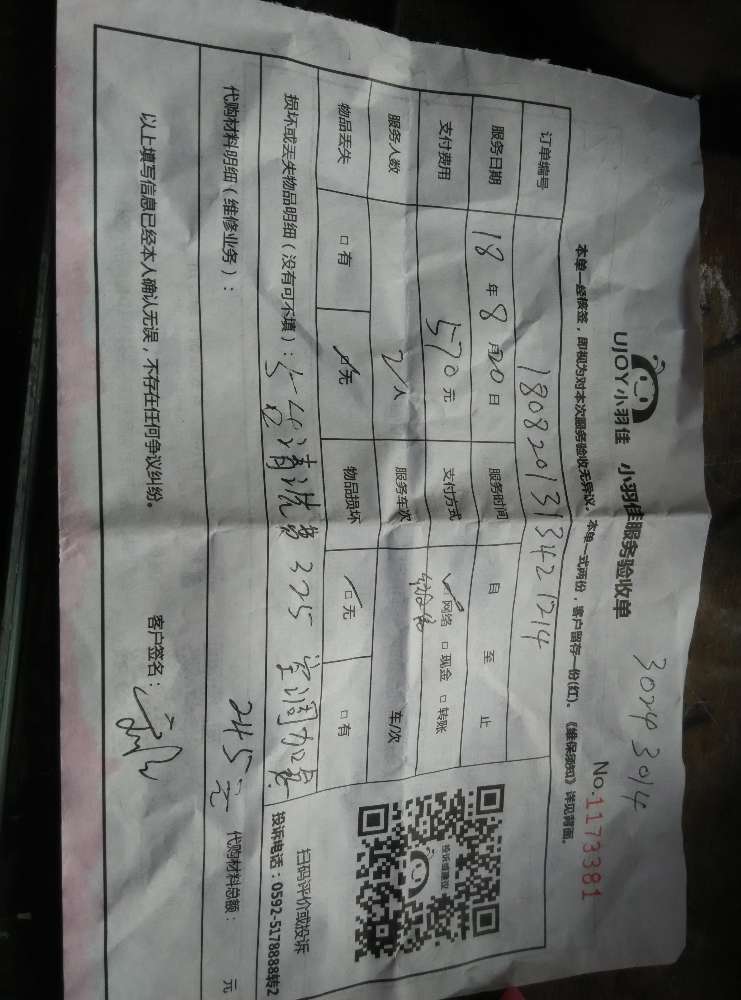 3024 3014
UJOY小羽佳 小羽佳服务验收单
No.1173381
本单一经核签，即视为对本次服务验收无异议。本单一式两份，客户留存一份(红)。《维保须知》详见背面。
订单编号 1808201313421214
服务日期 18年8月20日 服务时间 自 至 止
支付费用 570元 支付方式 ☑网络 □现金 □转账
服务人数 2人 服务车次 车/次
物品丢失 □有 ☑无 物品损坏 ☑无 □有
损坏或丢失物品明细（没有可不填）： 清洗费325 空调加氟
245元
代购材料明细（维修业务）： 代购材料总额： 元
以上填写信息已经本人确认无误，不存在任何争议纠纷。 客户签名：
投诉或建议
扫码评价或投诉
投诉电话：0592-5178888转2